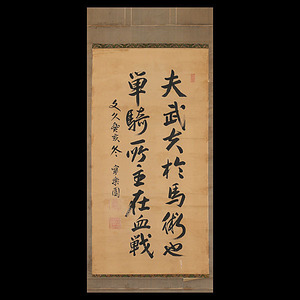 夫武夫於馬術也
単騎所主在血戦
文久癸亥冬